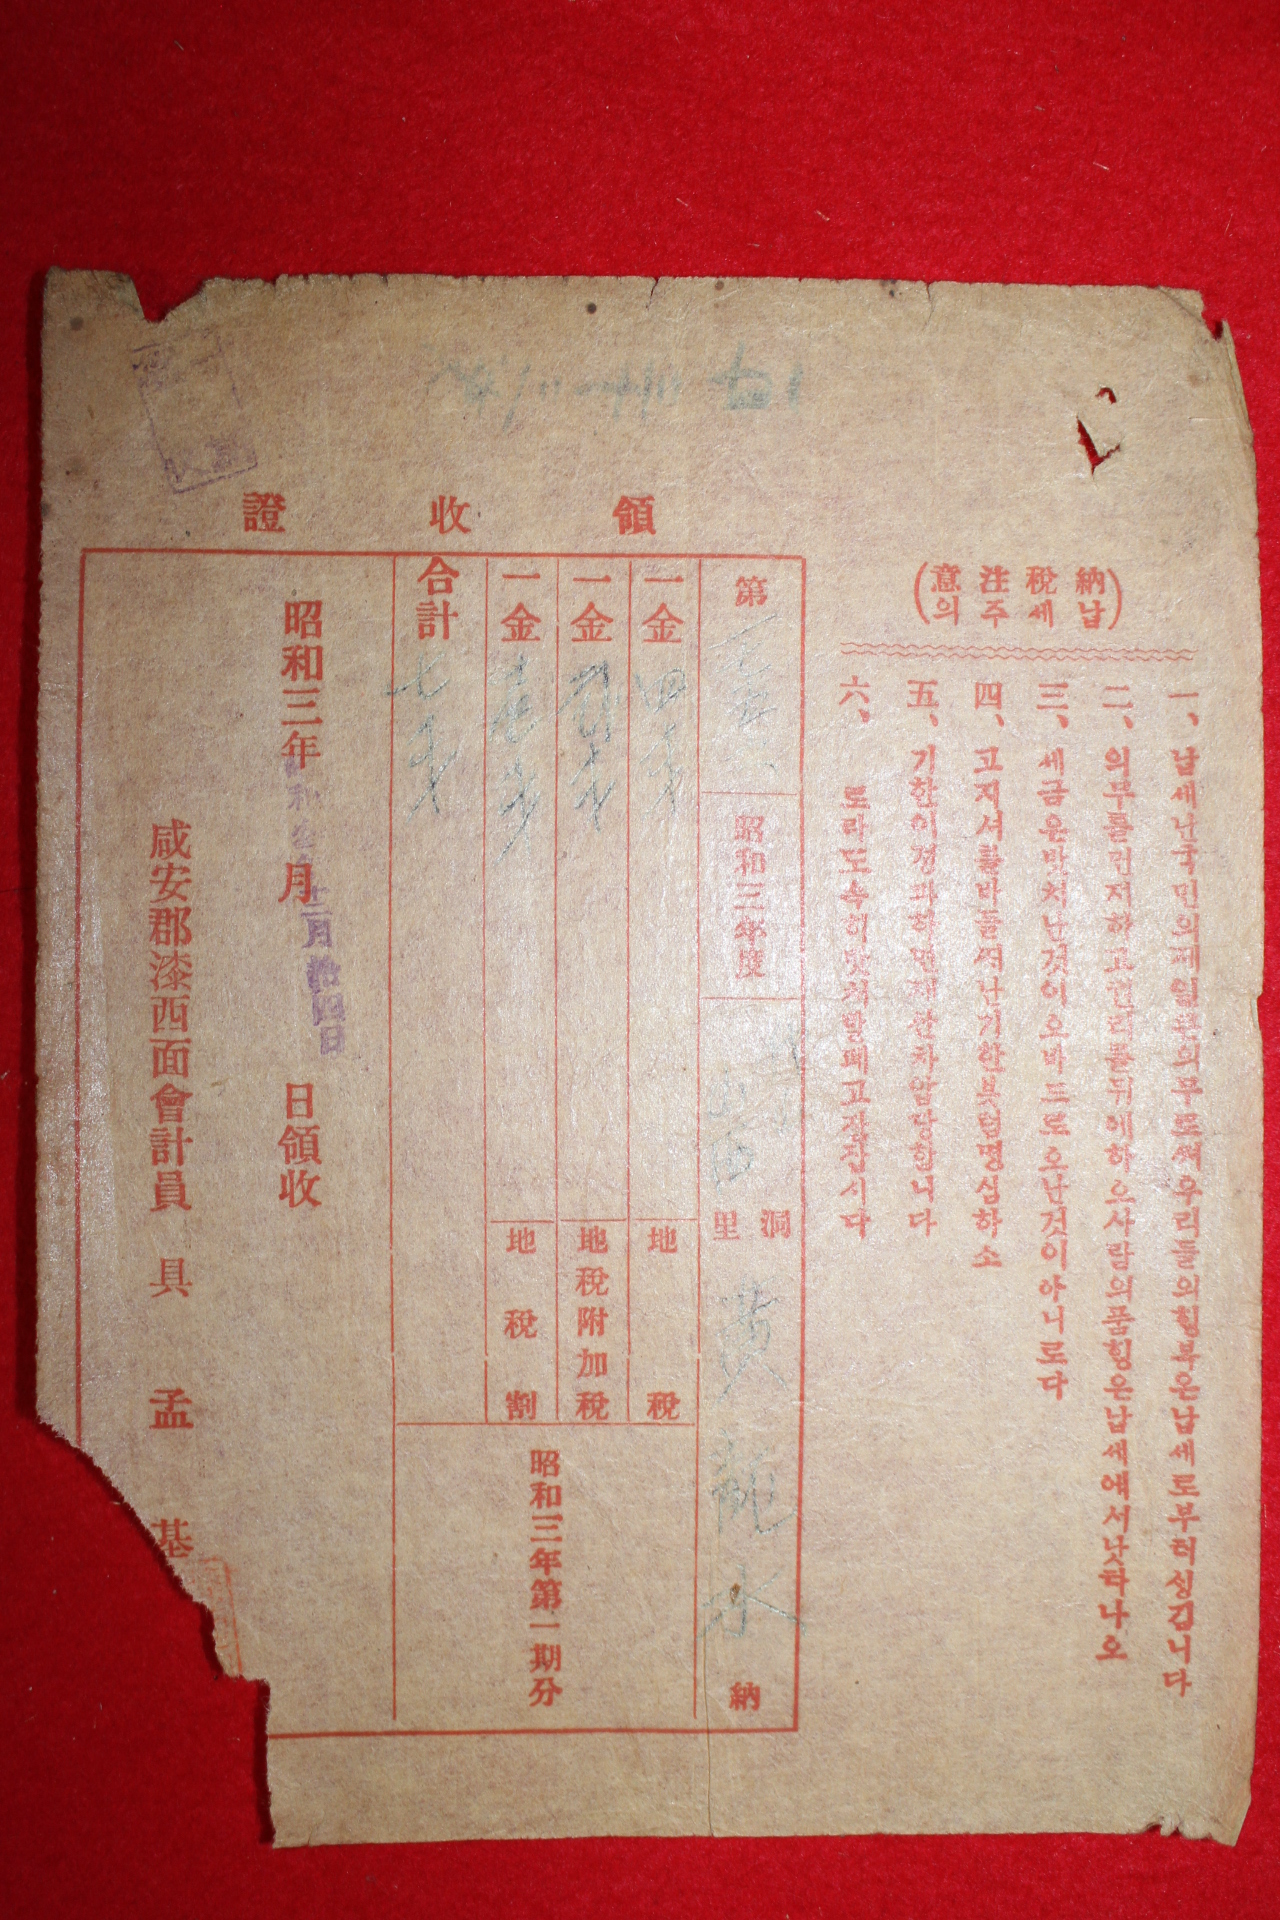 (納稅注意)
(납세주의)
一、납세난국민의제일큰의무로써우리들의힝복은납세로부허싱김니다
二、의무를먼저하고권리를뒤에하으사람의품힝은납세에서낫하나오
三、세금은밧처난것이오바드로오난것이아니로다
四、고지서를바들써난기한붓텀명심하소
五、기한이경과하면재산차압당합니다
六、토라도속히맛처알때고자집시다
領收證
第 昭和三年度 洞里 黃龍水 納
一金 四才 地稅
一金 地稅附加稅
一金 壹才 地稅割
合計 七才
昭和三年第一期分
昭和三年 月 日領收
十二月拾四日
咸安郡漆西面會計員 具孟基